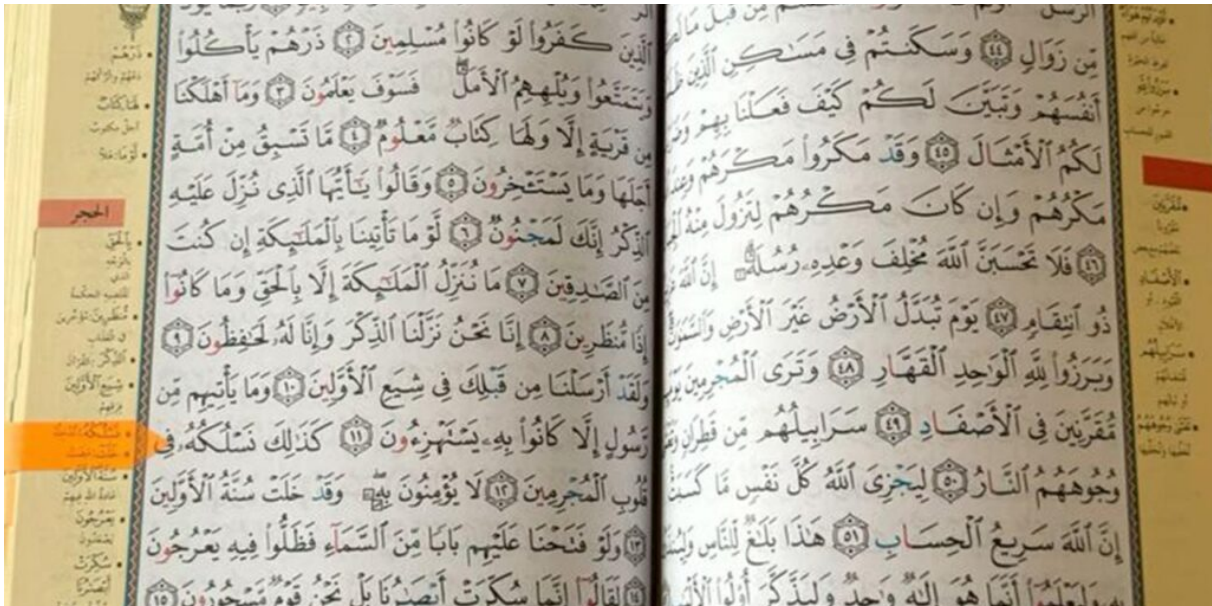 مِّن زَوَالٍ ٤٤ وَسَكَنتُمْ فِي مَسَٰكِنِ ٱلَّذِينَ
أَنفُسَهُمْ وَتَبَيَّنَ لَكُمْ كَيْفَ فَعَلْنَا بِهِمْ
لَكُمُ ٱلْأَمْثَالَ ٤٥ وَقَدْ مَكَرُوا۟ مَكْرَهُمْ
مَكْرُهُمْ وَإِن كَانَ مَكْرُهُمْ لِتَزُولَ مِنْهُ
٤٦ فَلَا تَحْسَبَنَّ ٱللَّهَ مُخْلِفَ وَعْدِهِۦ رُسُلَهُۥٓ إِنَّ ٱللَّهَ
ذُو ٱنتِقَامٍ ٤٧ يَوْمَ تُبَدَّلُ ٱلْأَرْضُ غَيْرَ ٱلْأَرْضِ وَٱلسَّمَٰوَٰتُ
وَبَرَزُوا۟ لِلَّهِ ٱلْوَٰحِدِ ٱلْقَهَّارِ ٤٨ وَتَرَى ٱلْمُجْرِمِينَ
مُّقَرَّنِينَ فِي ٱلْأَصْفَادِ ٤٩ سَرَابِيلُهُم مِّن قَطِرَانٍ
وُجُوهَهُمُ ٱلنَّارُ ٥٠ لِيَجْزِيَ ٱللَّهُ كُلَّ نَفْسٍ مَّا كَسَبَتْ
إِنَّ ٱللَّهَ سَرِيعُ ٱلْحِسَابِ ٥١ هَٰذَا بَلَٰغٌ لِّلنَّاسِ
بِهِۦ وَلِيَعْلَمُوٓا۟ أَنَّمَا هُوَ إِلَٰهٌ وَٰحِدٌ وَلِيَذَّكَّرَ أُو۟لُوا۟
ٱلَّذِينَ كَفَرُوا۟ لَوْ كَانُوا۟ مُسْلِمِينَ ٢ ذَرْهُمْ يَأْكُلُوا۟
وَيَتَمَتَّعُوا۟ وَيُلْهِهِمُ ٱلْأَمَلُ فَسَوْفَ يَعْلَمُونَ ٣ وَمَآ أَهْلَكْنَا
مِن قَرْيَةٍ إِلَّا وَلَهَا كِتَابٌ مَّعْلُومٌ ٤ مَّا تَسْبِقُ مِنْ أُمَّةٍ
أَجَلَهَا وَمَا يَسْتَـْٔخِرُونَ ٥ وَقَالُوا۟ يَٰٓأَيُّهَا ٱلَّذِي نُزِّلَ عَلَيْهِ
ٱلذِّكْرُ إِنَّكَ لَمَجْنُونٌ ٦ لَّوْ مَا تَأْتِينَا بِٱلْمَلَٰٓئِكَةِ إِن كُنتَ
مِنَ ٱلصَّٰدِقِينَ ٧ مَا نُنَزِّلُ ٱلْمَلَٰٓئِكَةَ إِلَّا بِٱلْحَقِّ وَمَا كَانُوٓا۟
إِذًا مُّنظَرِينَ ٨ إِنَّا نَحْنُ نَزَّلْنَا ٱلذِّكْرَ وَإِنَّا لَهُۥ لَحَٰفِظُونَ ٩
وَلَقَدْ أَرْسَلْنَا مِن قَبْلِكَ فِي شِيَعِ ٱلْأَوَّلِينَ ١٠ وَمَا يَأْتِيهِم مِّن
رَّسُولٍ إِلَّا كَانُوا۟ بِهِۦ يَسْتَهْزِءُونَ ١١ كَذَٰلِكَ نَسْلُكُهُۥ فِي
قُلُوبِ ٱلْمُجْرِمِينَ ١٢ لَا يُؤْمِنُونَ بِهِۦ وَقَدْ خَلَتْ سُنَّةُ ٱلْأَوَّلِينَ
١٣ وَلَوْ فَتَحْنَا عَلَيْهِم بَابًا مِّنَ ٱلسَّمَآءِ فَظَلُّوا۟ فِيهِ يَعْرُجُونَ
١٤ لَقَالُوٓا۟ إِنَّمَا سُكِّرَتْ أَبْصَٰرُنَا بَلْ نَحْنُ قَوْمٌ مَّسْحُورُونَ ١٥
ذَرْهُمْ
الحجر
بِٱلْحَقِّ
مُنظَرِينَ
شِيَعِ ٱلْأَوَّلِينَ
نَسْلُكُهُ
سُنَّةُ ٱلْأَوَّلِينَ
يَعْرُجُونَ
سُكِّرَتْ
أَبْصَٰرُنَا
مُقَرَّنِينَ
ٱلْأَصْفَادِ
سَرَابِيلُهُم